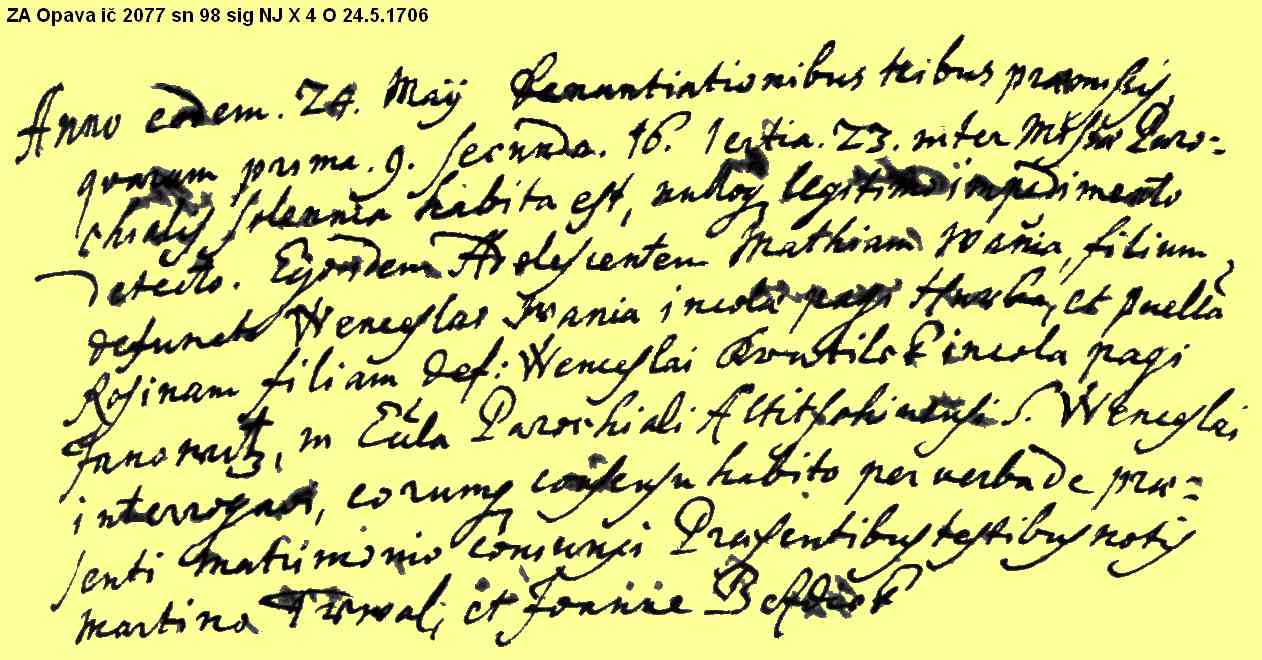 ZA Opava ič 2077 sn 98 sig NJ X 4 O 24.5.1706
Anno eodem. 24. Maij Denuntiationibus tribus præmissis,
qvarum prima. 9. secunda. 16. Tertia. 23. inter Missar Paro-
chialis solennia habita est, nulloq legitimo impedimento
detecto. Ego eidem Adolescentem Mathiam Wania, filium
defuncti Wenceslai Wania incola pagi et puella
Rosinam filiam def: Wenceslai incola pagi
Janowitz, in Eccla Parochiali Altitschinensi S. Wenceslai
interrogavi, eorumq consensu habito per verba de præ-
senti matrimonio coniunxi Præsentibus testibus notis
Martino et Joanne